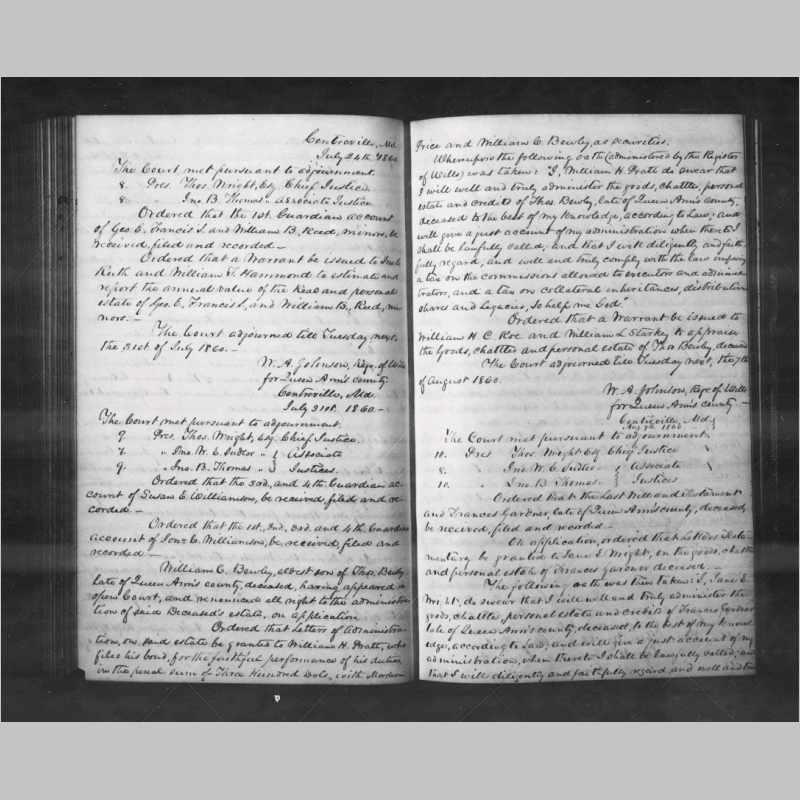 Centreville, Md.
July 24th 1860.
The Court met pursuant to adjournment.
8. Pres. Thos. Wright, Esq. Chief Justice
8. " Jno. B. Thomas " Associate Justice
Ordered that the 1st. Guardian account
of Geo. C. Francis S. and William B. Reed, minors, be
received, filed and recorded.—
Ordered that a Warrant be issued to
and William S. Hammond to estimate and
report the annual value of the Real and personal
estate of Geo. C., Francis S., and William B., Reed, mi-
nors.—
The Court adjourned till Tuesday next,
the 31st of July 1860.—
W. A. Johnson, Regr. of Wills
for Queen Ann's county
Centreville, Md.
July 31st. 1860.—
The Court met pursuant to adjournment.
9. Pres. Thos. Wright, Esq. Chief Justice.
7. " Jno. W. E. Sudler " } Associate
9. " Jno. B. Thomas " } Justices.
Ordered that the 3rd, and 4th Guardian ac-
count of Susan E. Williamson, be received, filed and re-
corded.—
Ordered that the 1st, 2nd, 3rd, and 4th Guardian
account of C. Williamson, be received, filed and
recorded.—
William C. Bewly, eldest son of Thos. Bewly
late of Queen Ann's county, deceased, having appeared in
open Court, and renounced all right to the administra-
tion of said Deceased's estate, on application
Ordered that letters of administra-
tion, on said estate be granted to William H. Pratt, who
files his bond, for the faithful performance of his duties
in the penal sum of Three Hundred Dols., with
Price and William C. Bewly, as securities.
Whereupon the following oath (administered by the Register
of Wills) was taken: "I, William H. Pratt do swear that
I will well and truly administer the goods, chattles, personal
estate and credits of Thos. Bewly, late of Queen Ann's county,
deceased to the best of my knowledge, according to Law; and
will give a just account of my administration when thereto I
shall be lawfully called; and that I will diligently and faith-
fully, regard, and well and truly comply with the laws imposing
a tax on the commissions allowed to executors and adminis-
trators, and a tax on collateral inheritances, distributive
shares and legacies, So help me God."
Ordered that a Warrant be issued to
William H. C. Roe and William L. Starkey to appraise
the Goods, chattles and personal estate of Thos Bewly, deceased
The Court adjourned till Tuesday next, the 7th
of August 1860.
W. A. Johnson, Regr. of Wills
for Queen Ann's county —
Centreville, Md.
Aug 7th 1860
The Court met pursuant to adjournment.
10. Pres. Thos. Wright Esq Chief Justice
8. " Jno. W. E. Sudler } Associate
10. " Jno B. Thomas } Justices
Ordered that the Last Will and Testament
and Frances Gardner, late of Queen Ann's county, deceased,
be received, filed and recorded.—
On application, ordered that Letters Testa-
mentary be granted to Jane E. Wright, on the goods, chattles
and personal estate of Frances Gardner deceased.—
The following oath was then taken: I, Jane E.
Wright, do swear that I will well and truly administer the
goods, chattles, personal estate and credits of Frances Gardner
late of Queen Ann's county, deceased, to the best of my knowl-
edge, according to Law; and will give a just account of my
administration, when thereto I shall be lawfully called; and
that I will diligently and faithfully regard and well and tru-